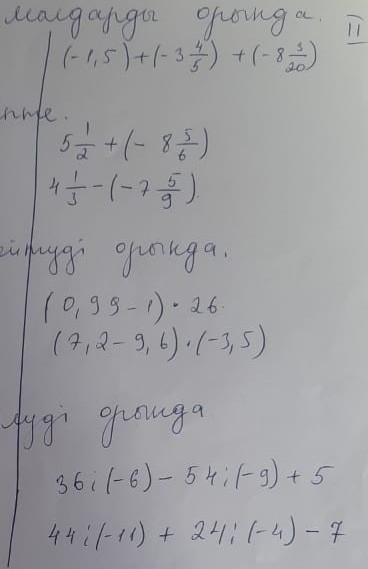 малдарды орында. II
(-1,5)+(-3 4/5) + (-8 3/20)
5 1/2 + (- 8 5/6)
4 1/3 - (-7 5/9).
орында.
(0,99-1) · 26.
(7,2-9,6) · (-3,5)
орында
36 : (-6) - 54 : (-9) + 5
44 : (-11) + 24 : (-4) - 7